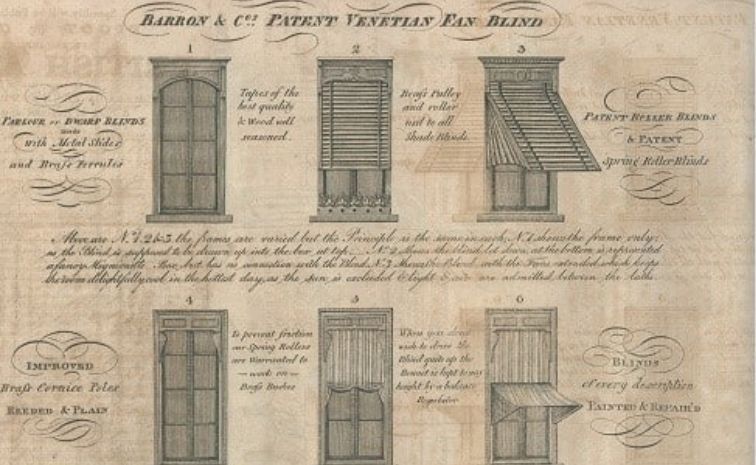 BARRON & Co.s PATENT VENETIAN FAN BLIND
1
2
3
PARLOUR or DWARF BLINDS
with Metal Slides
and Brass Ferrules
Tapes of the
best quality
& Wood well
seasoned.
Brass Pulley
and roller
to all
Shade Blinds
PATENT ROLLER BLINDS
& PATENT
Spring Roller Blinds
Above are No. 1, 2 & 3 the frames are varied but the Principle is the same in each, No. 1 shews the frame only;
as the Blind is supposed to be drawn up into the box at top. No. 2 shews the blind let down, at the bottom is represented
a fancy Mignionette Box but has no connection with the Blind, No. 3 Shews the Blind with the Fans extended which keeps
the room delightfully cool in the hottest day, as the sun is excluded & light & air are admitted between the laths.
4
5
6
IMPROVED
Brass Cornice Poles
REEDED & PLAIN
To prevent friction
our Spring Rollers
are Warranted to
— work on —
Brass Bushes
When you dont
wish to draw the
Blind quite up the
Bonnet is kept to any
height by a balance
Regulator
BLINDS
of every description
PAINTED & REPAIR'D